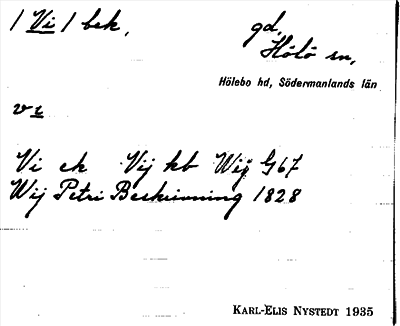 / Vi / bek, gd,
Hölö sn,
Hölebo hd, Södermanlands län
v i
Vi ek Vij kb Wij G67
Wij Petri Beskrivning 1828
KARL-ELIS NYSTEDT 1935